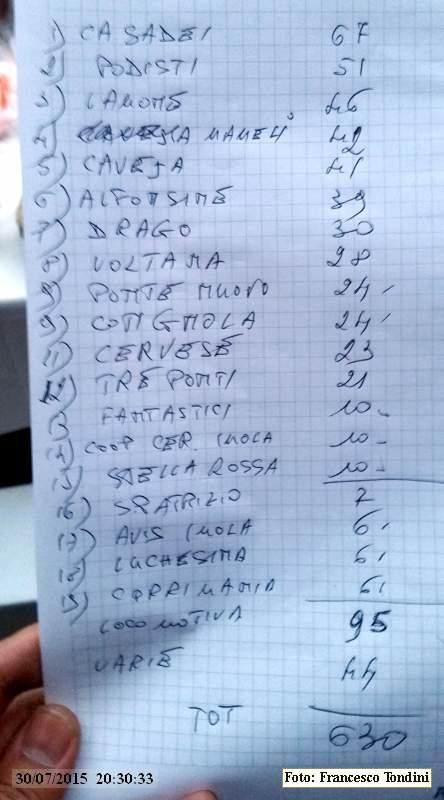 1) CASADEI 67
2) PODISTI 51
3) LAMONE 46
4 MAMELI 42
5) CAVEJA 41
6) ALFONSINE 39
7) DRAGO 30
8) VOLTANA 28
9) PONTE NUOVO 24
9) COTIGNOLA 24
11) CERVESE 23
12) TRE PONTI 21
13 FANTASTICI 10
14) COOP CER. IMOLA 10
15) STELLA ROSSA 10
16) S PATRIZIO 7
17) AVIS IMOLA 6
18) LUCHESINA 6
19) CORRIMANIA 6
LOCOMOTIVA 95
VARIE 44
TOT 630
30/07/2015 20:30:33
Foto: Francesco Tondini